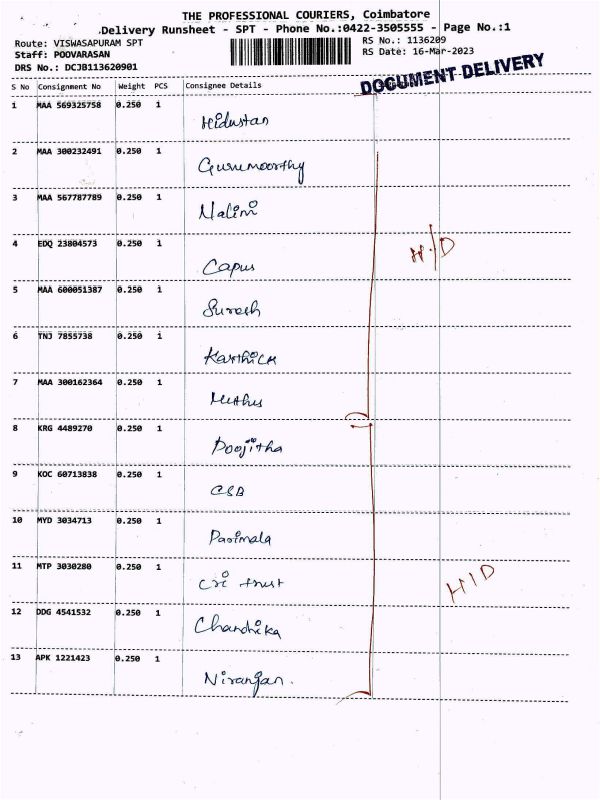 THE PROFESSIONAL COURIERS, Coimbatore
Delivery Runsheet - SPT - Phone No.:0422-3505555 - Page No.:1
Route: VISWASAPURAM SPT
Staff: POOVARASAN
DRS No.: DCJB113620901
RS No.: 1136209
RS Date: 16-Mar-2023
DOCUMENT DELIVERY
S No Consignment No Weight PCS Consignee Details
1 MAA 569325758 0.250 1
Hidustan
2 MAA 300232491 0.250 1
Gurumoorthy
3 MAA 567787789 0.250 1
Nalini
4 EDQ 23804573 0.250 1
Capus
H/D
5 MAA 600051387 0.250 1
Suresh
6 TNJ 7855738 0.250 1
Karthick
7 MAA 300162364 0.250 1
Muthus
8 KRG 4489270 0.250 1
Poojitha
9 KOC 60713838 0.250 1
CSB
10 MYD 3034713 0.250 1
Parimala
11 MTP 3030280 0.250 1
Cri trust
H/D
12 DDG 4541532 0.250 1
Chandrika
13 APK 1221423 0.250 1
Niranjan.